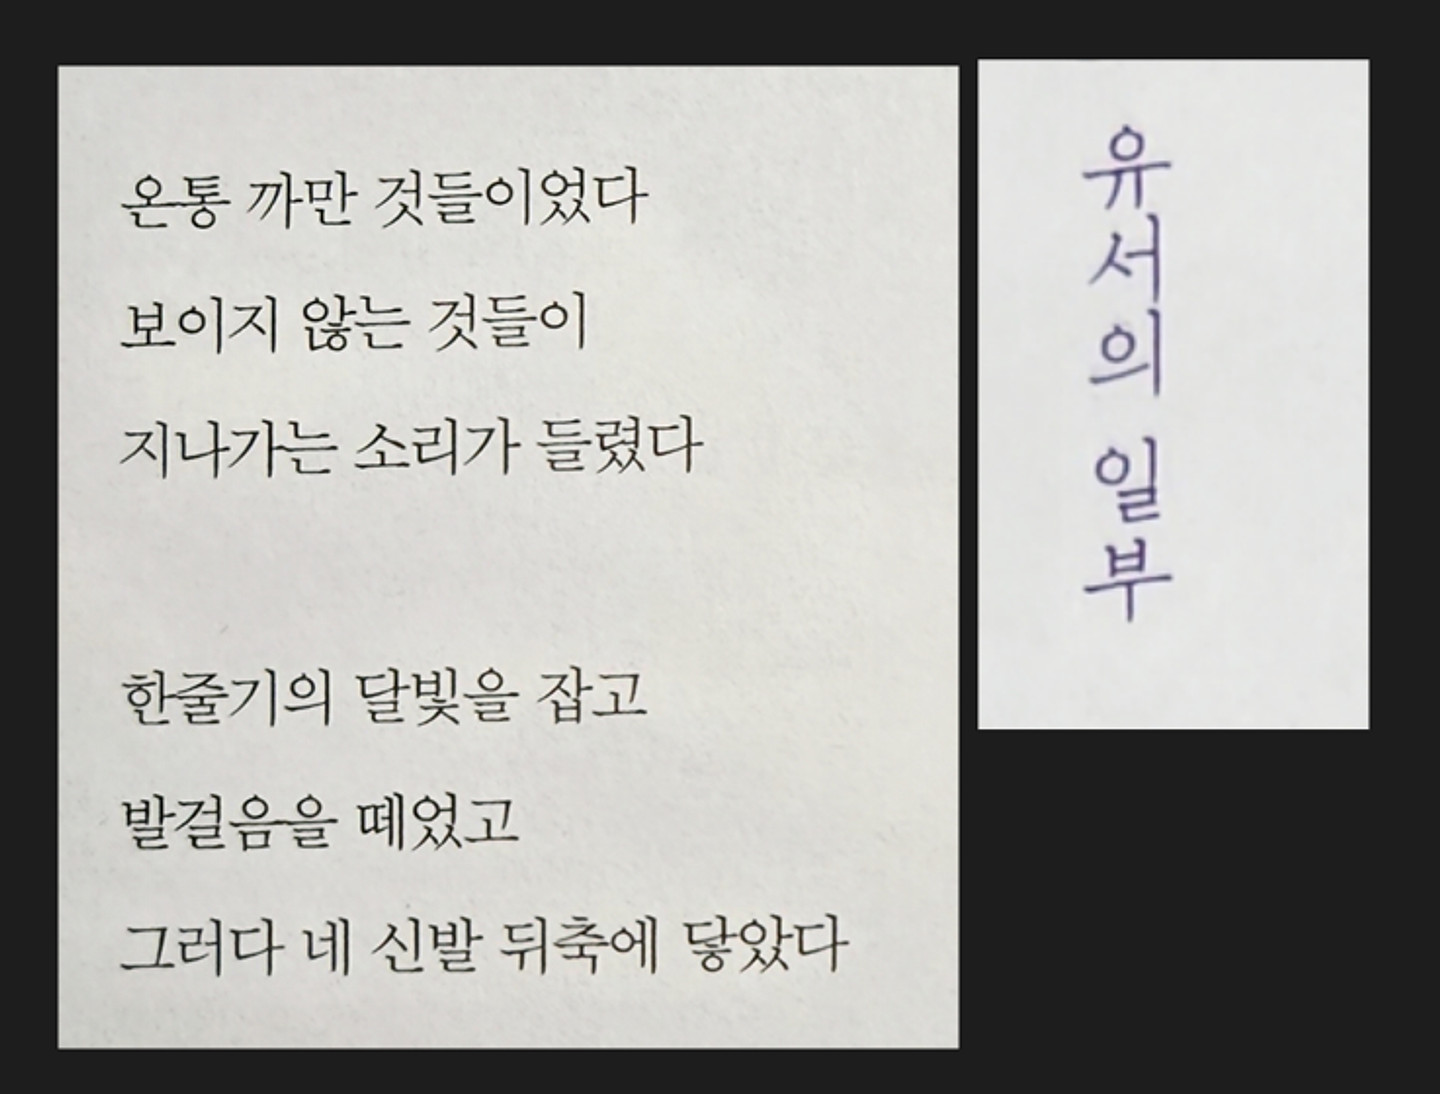 온통 까만 것들이었다
보이지 않는 것들이
지나가는 소리가 들렸다
한줄기의 달빛을 잡고
발걸음을 떼었고
그러다 네 신발 뒤축에 닿았다
유서의 일부